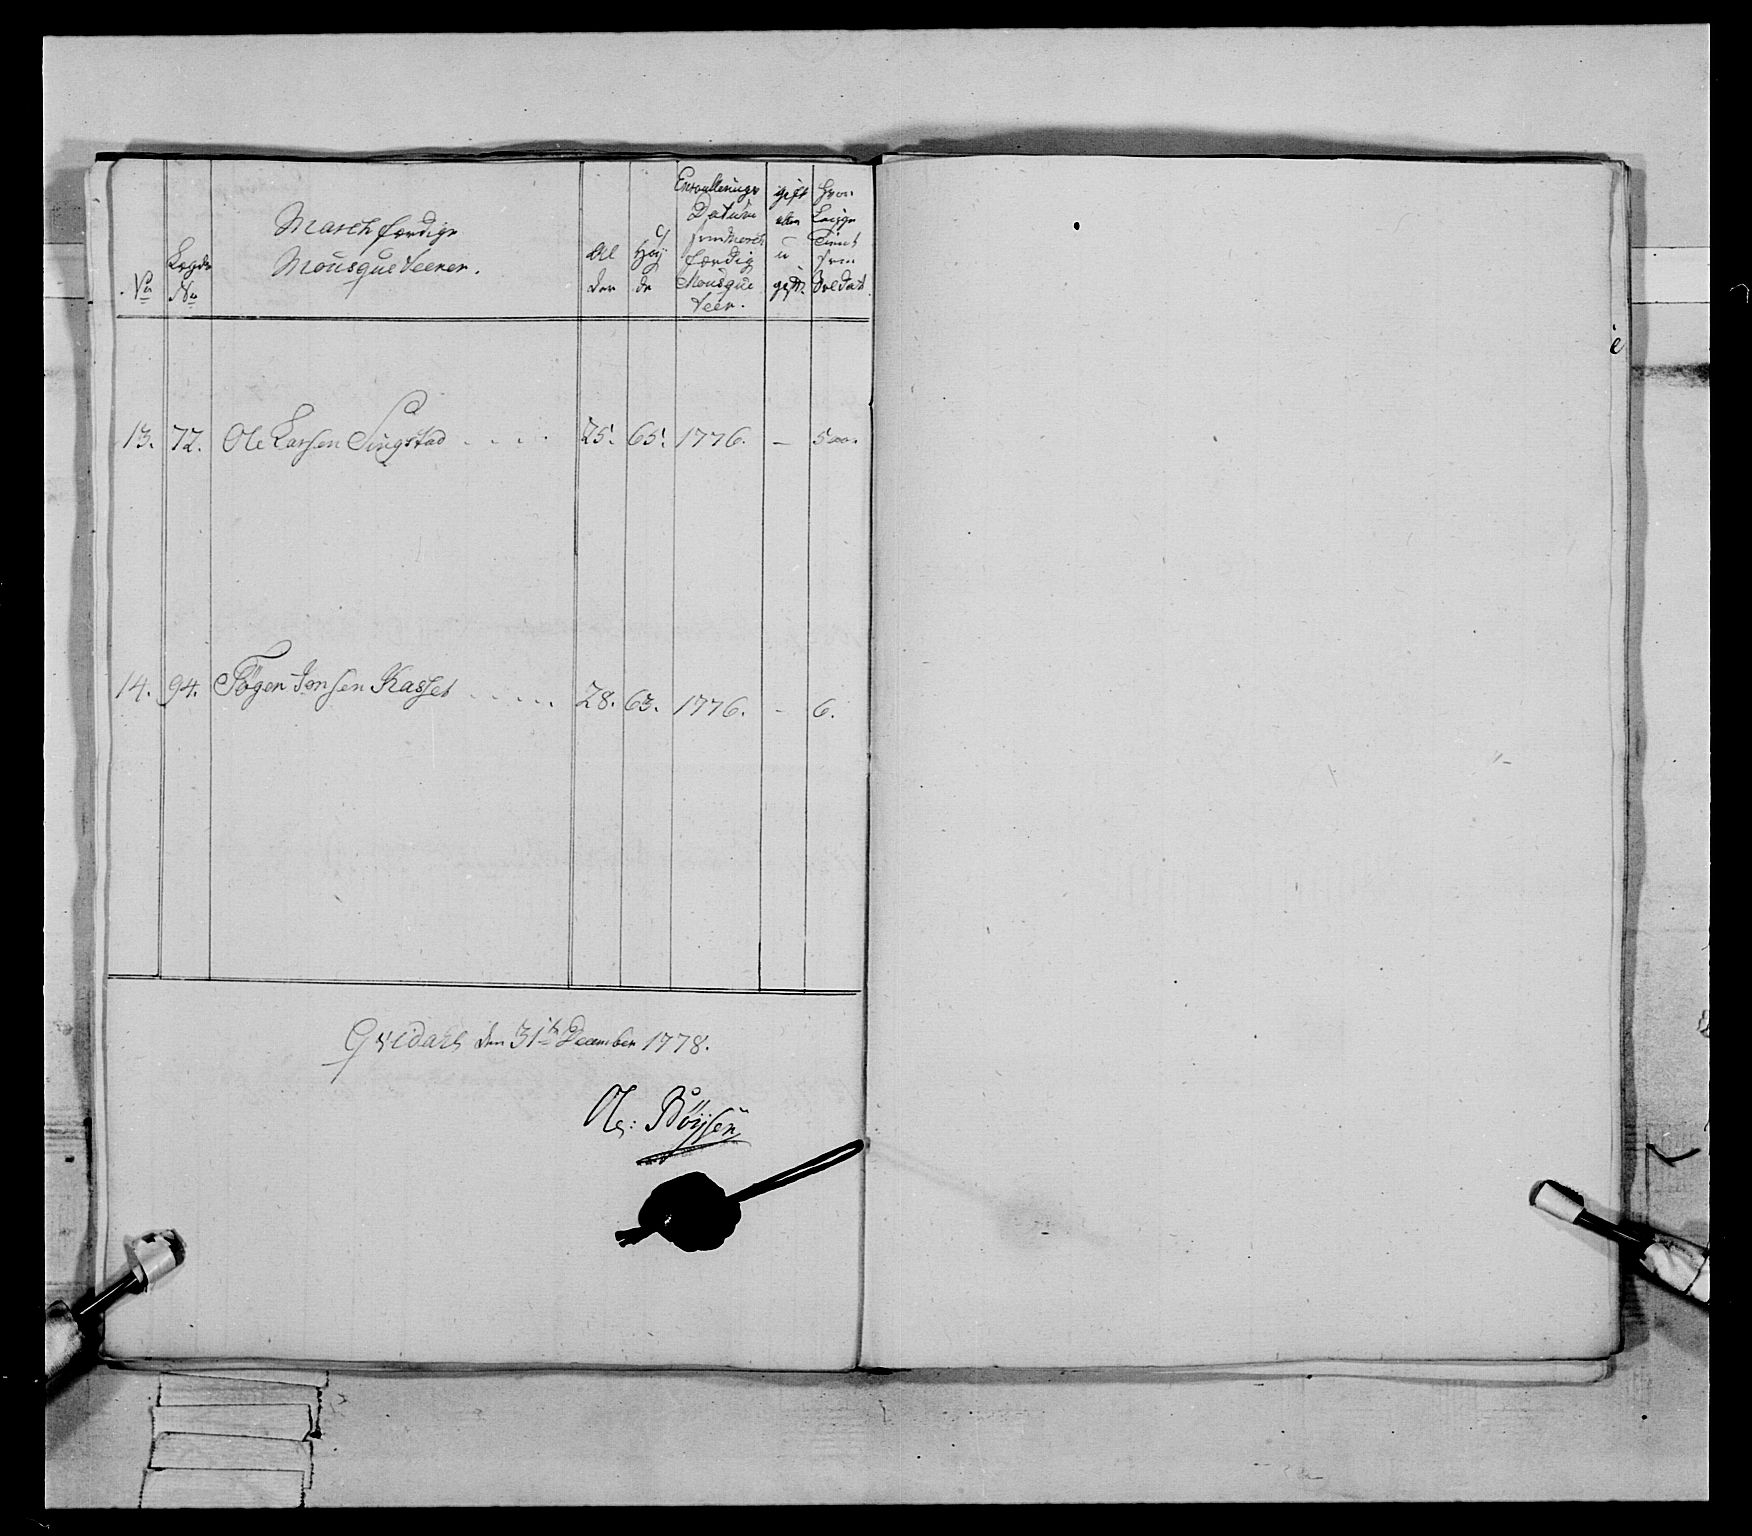 No
Legds
No
March færdige
Mousqueteerer.
Al
der
Høy
de
Enroullerings
Datum
som March
færdig
Mousque
teer.
gift
eller
u
gift.
hvor
Længe
Tient
som
Soldat.
13. 72. Ole Larsen Singstad . . . . 25. 65. 1776. – 5 aar
14. 94. Jonsen Kasset . . . . . 28. 63. 1776. – 6.
den 31te December 1778.
Ole: Böysen